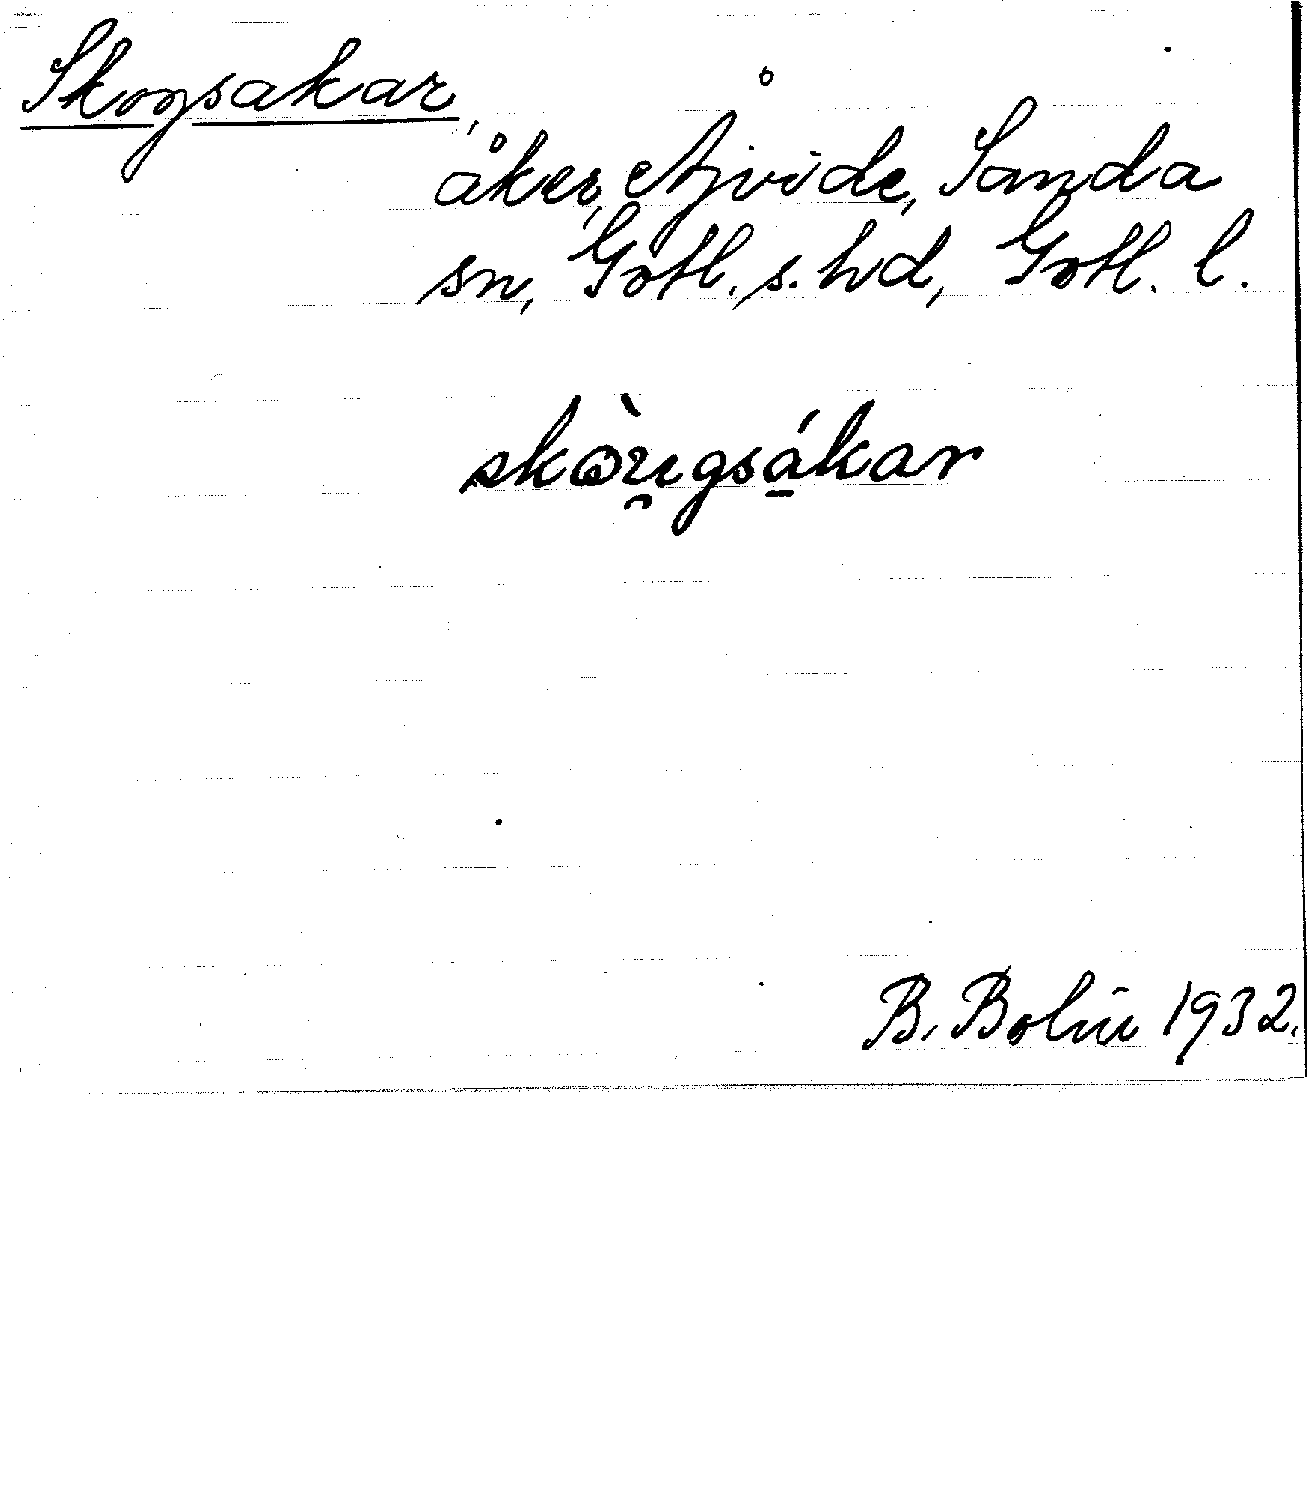 Skogsakar,
åker, Ajvide, Sanda
sn, Gotl. s. hd, Gotl. l.
skòu̯gsá̱kar
B. Bolin 1932.